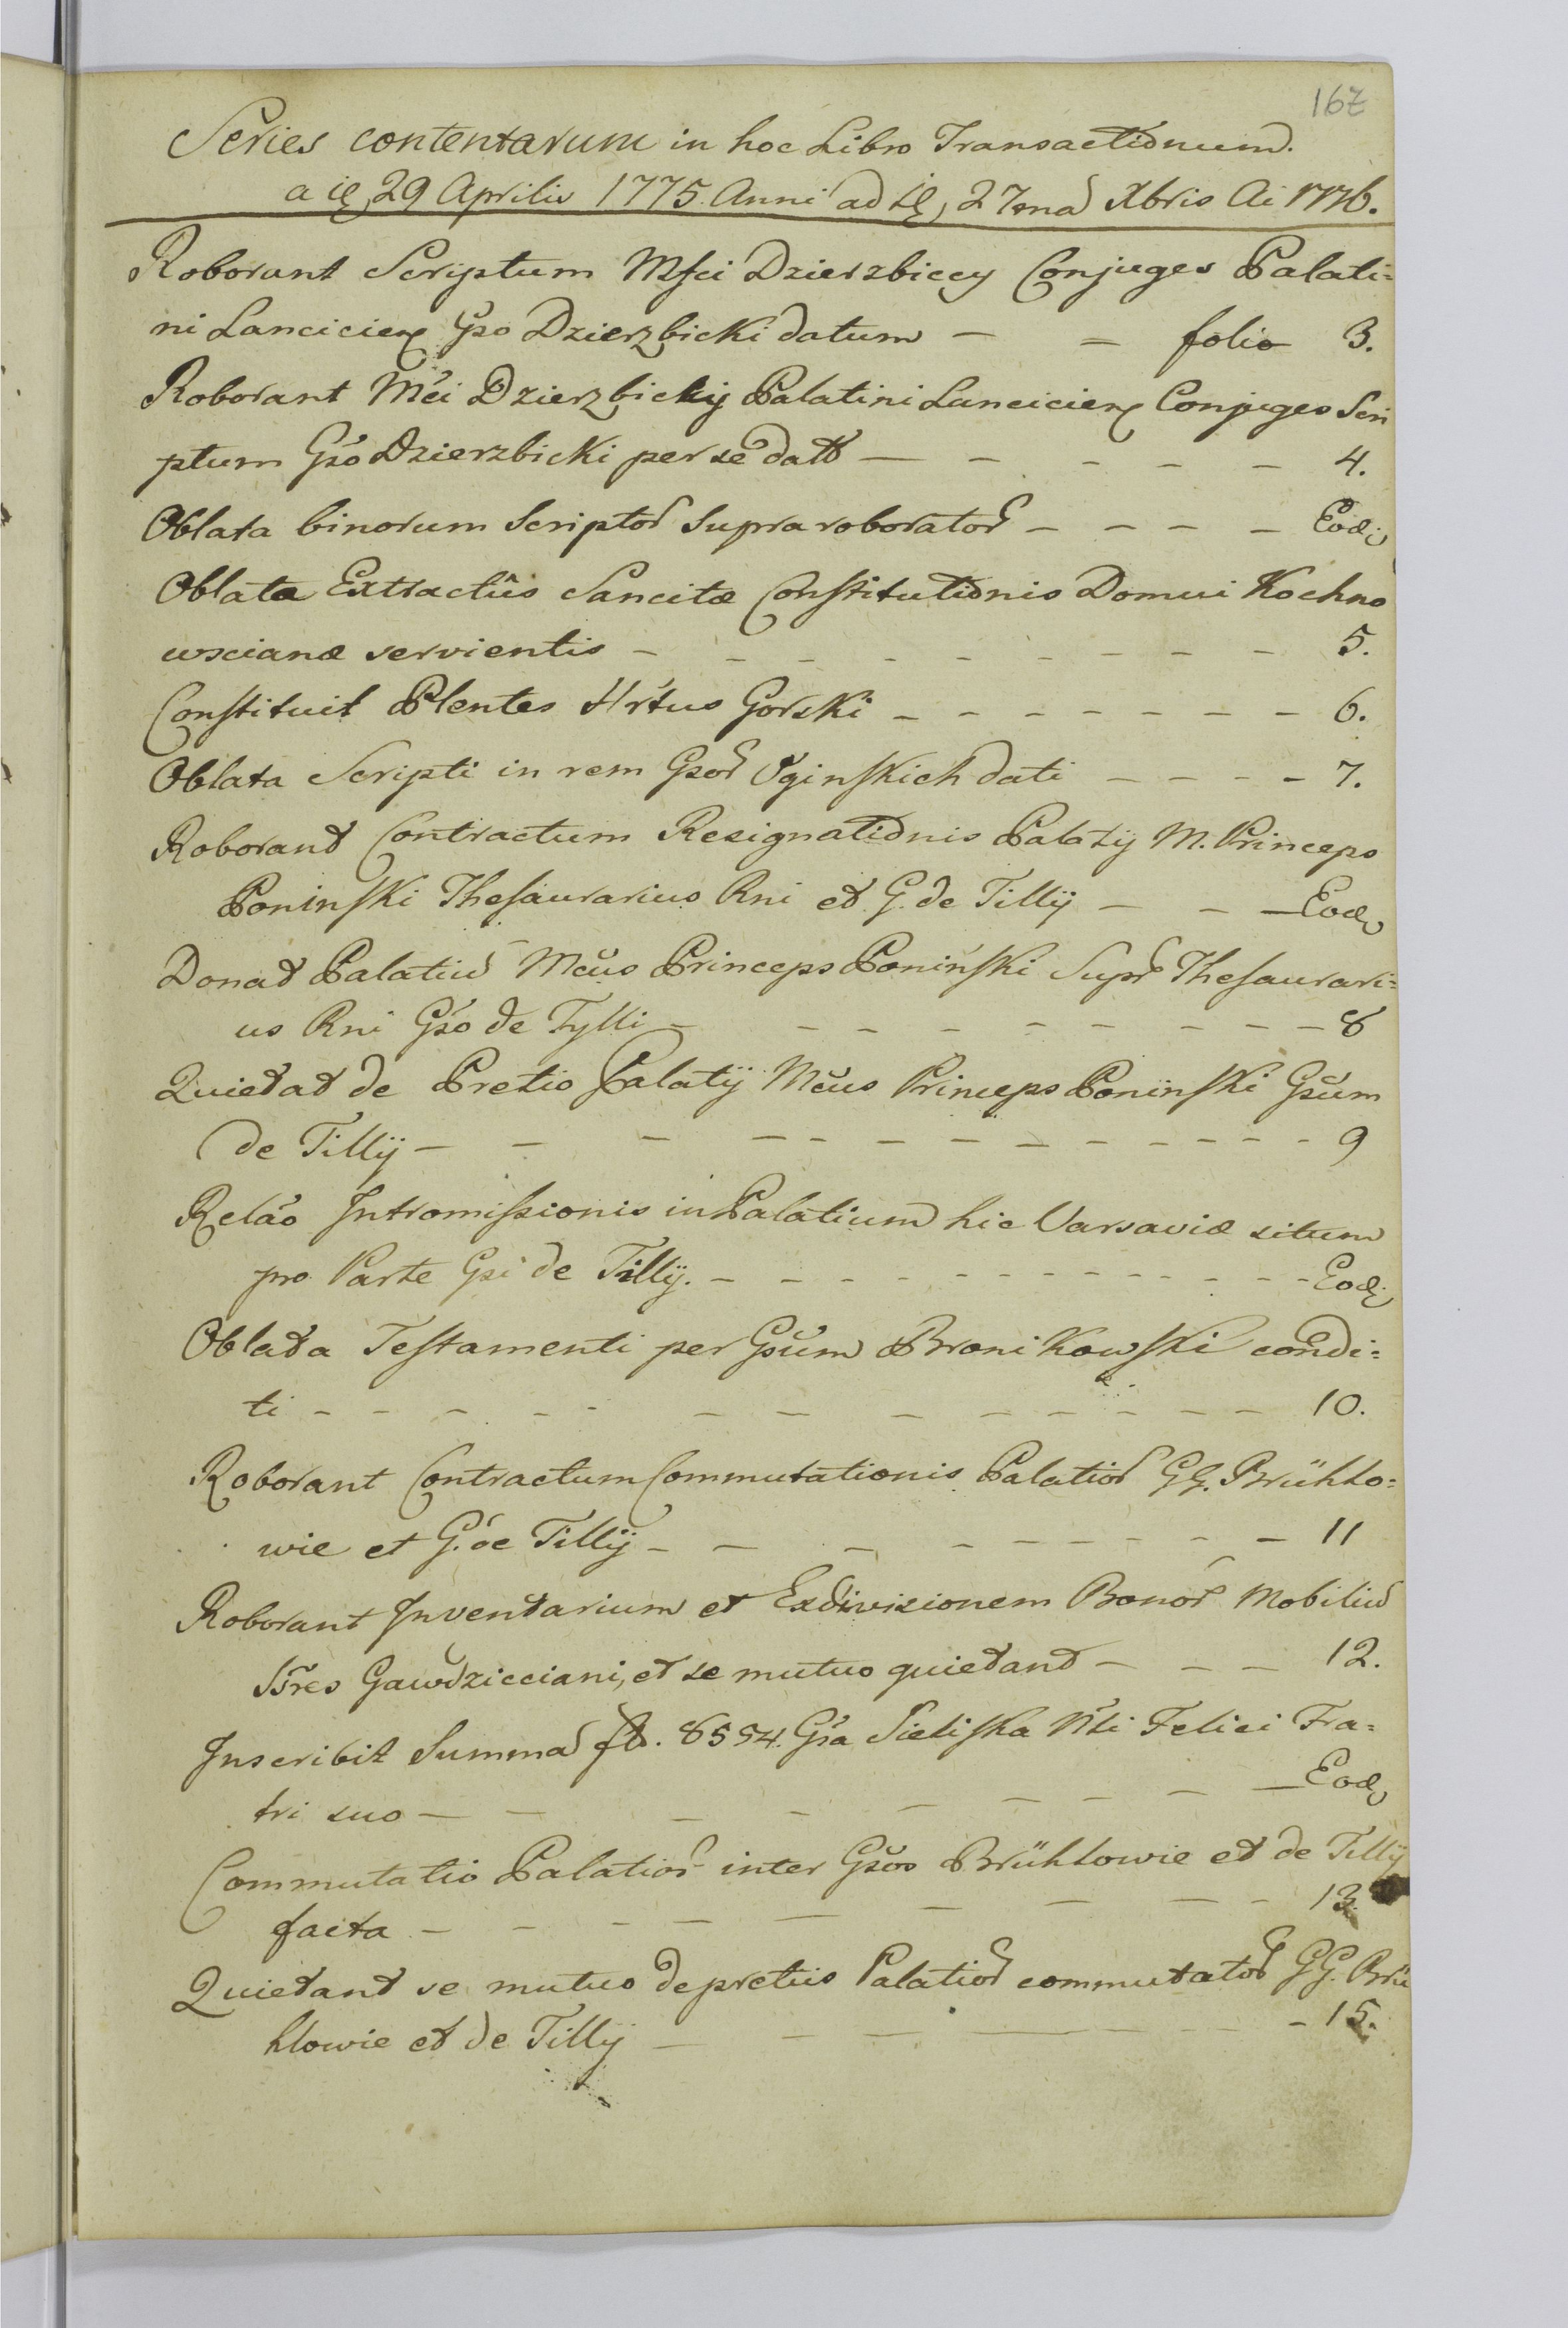 167
Series contentarum in hoc Libro Transactionum.
a ie, 29 Aprilis 1775. Anni ad ie, 27ma Xbris Ai 1776.
Roborant Scriptum Msci Dzierzbiccy Conjuges Palati=
ni Lancicien Gso Dzierzbicki datum — — folio 3.
Roborant Mci Dzierzbickij Palatini Lancicien Conjuges Scri
ptum Gso Dzierzbicki per se datt — — — — — 4.
Oblata binorum Scriptor supra roborator — — — — Eod,
Oblata Extractûs Sancitæ Constitutionis Domui Kochno
wscianæ servientis — — — — — — — — — 5.
Constituit Plentes Urtus Gorski — — — — — — — 6.
Oblata Scripti in rem Gsor Oginskich dati — — — — 7.
Roborant Contractum Resignationis Palatij M. Princeps
Poninski Thesaurarius Rni et G. de Tillij — — — Eod,
Donat Palatiu Mcus Princeps Poniński Supr Thesaurari=
us Rni Gso de Tylli — — — — — — — — — 8
Quietat de Pretio Palatij Mcus Princeps Poninski Gsum
de Tillij — — — — — — — — — — — — — 9
Relao Intromissionis in Palatium hic Varsaviæ situm
pro Parte Gsi de Tillij. — — — — — — — — — — — Eod,
Oblata Testamenti per Gsum Bronikowski condi=
ti — — — — — — — — — — — — — 10.
Roborant Contractum Commutationis Palatior GG. Brühlo=
wie et G. de Tillij — — — — — — — — — 11
Roborant Inventarium et Exdivisionem Bonor Mobiliu
Ssres Gawdzicciani, et se mutuo quietant — — — 12.
Inscribit Summa fl. 8554. Gsa Sieliska Nli Felici Fra=
tri suo — — — — — — — — — Eod,
Commutatio Palatior inter Gsos Brühlowie et de Tillij
facta — — — — — — — — — 13.
Quietant se mutuo de pretiis Palatior commutator GG. Brü
hlowie et de Tillij — — — — — — 15.